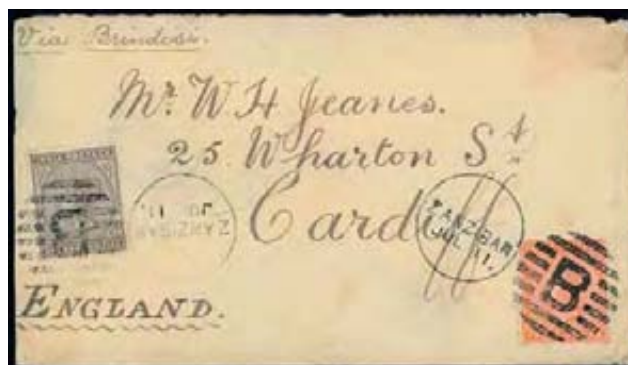 Via Brindosi.
Mr. W H Jeanes.
25 Wharton St.
Cardiff
ZANZIBAR
JUL 11.
ZANZIBAR
JUL 11.
B
ENGLAND.